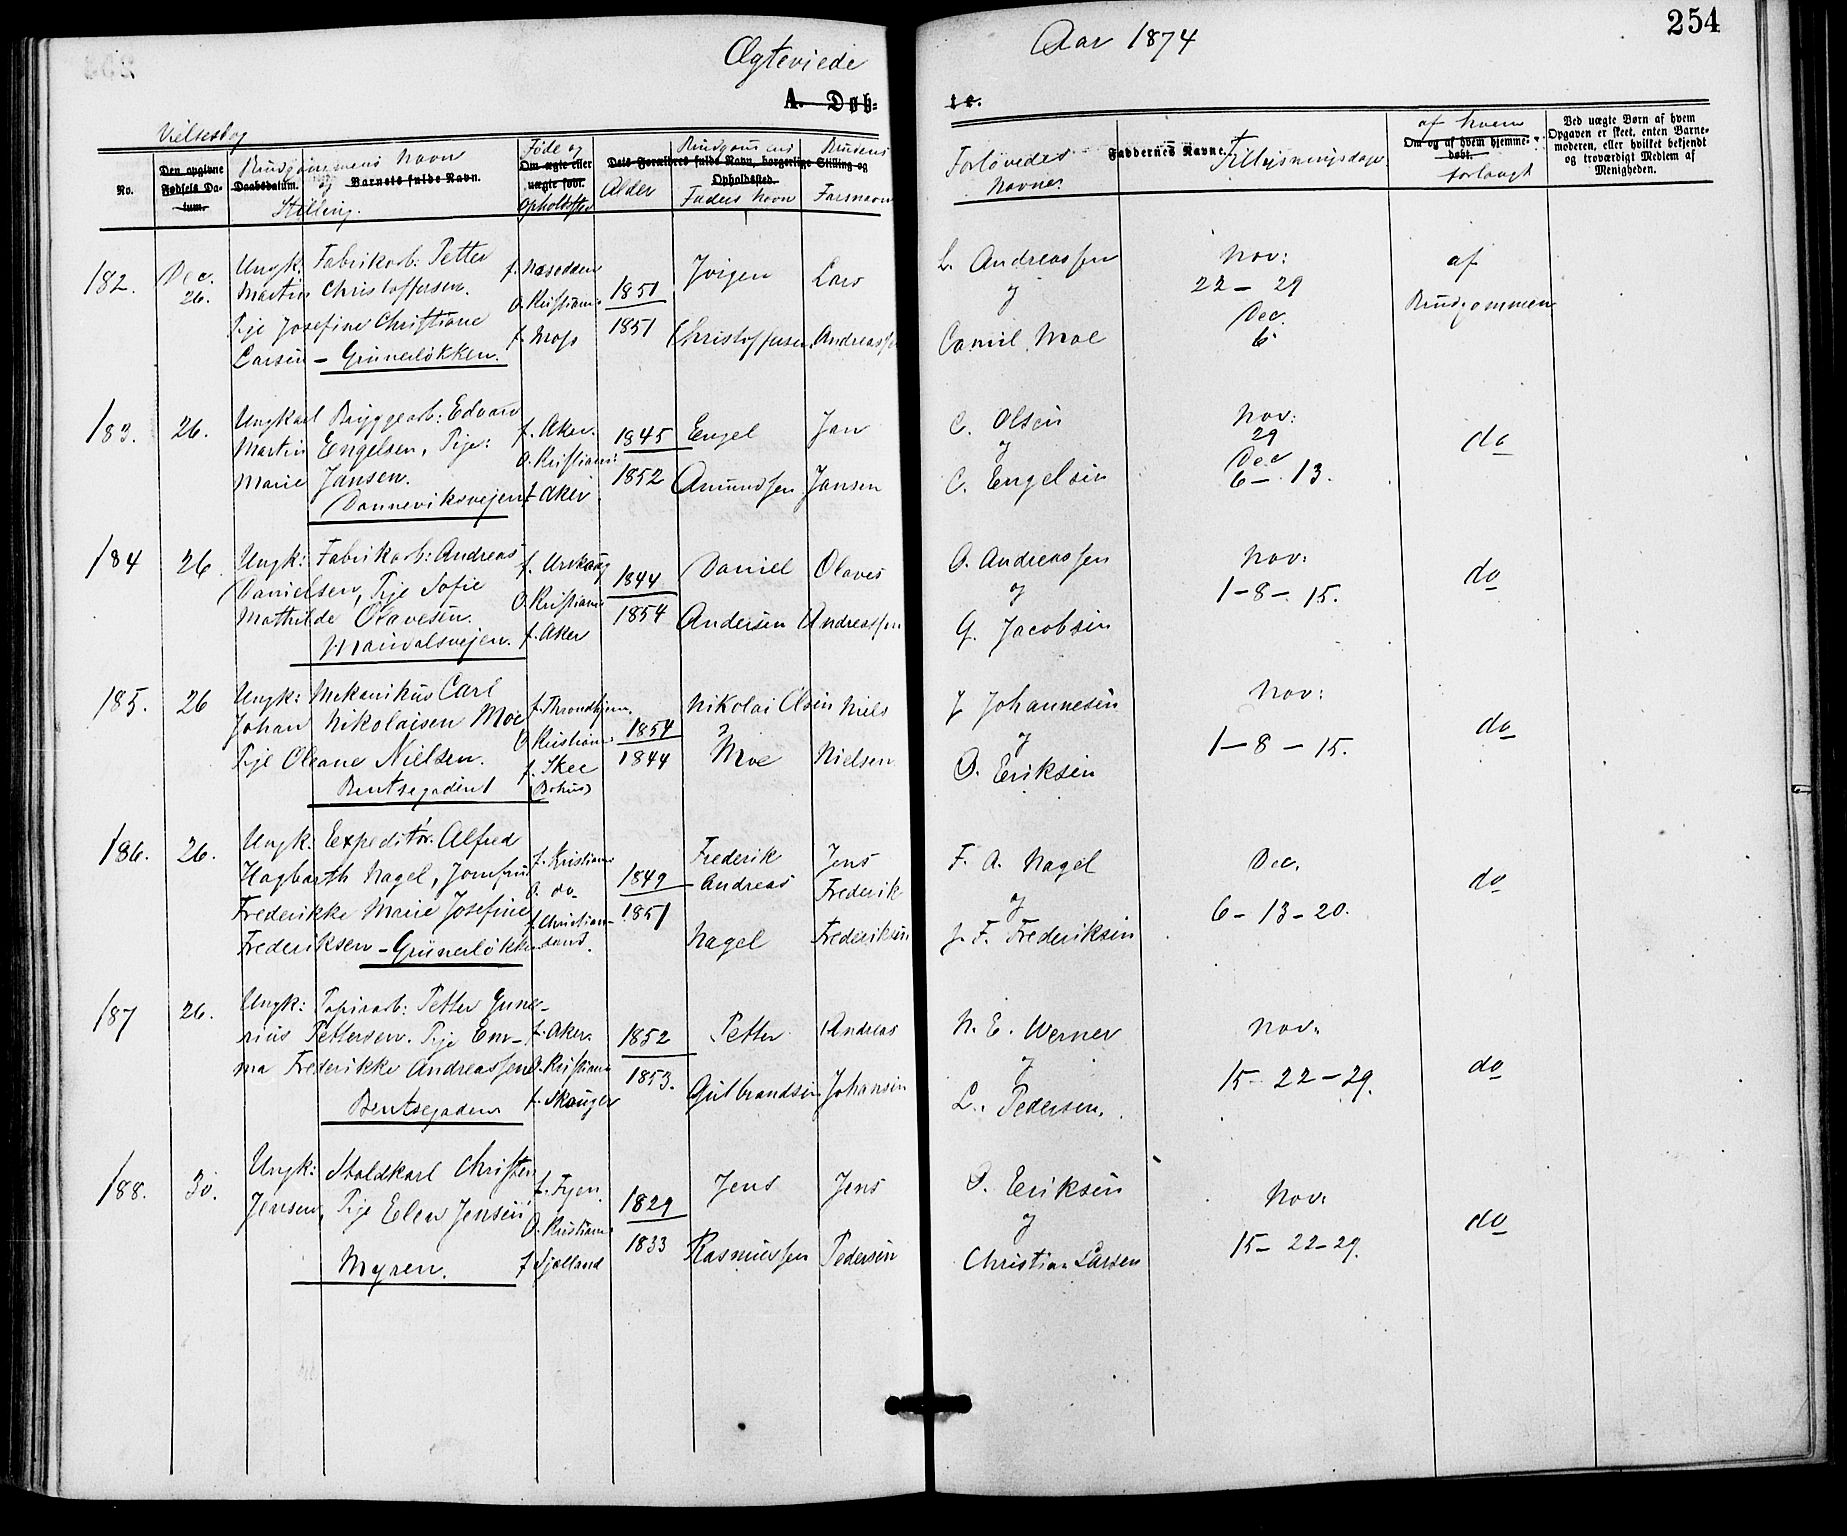 254
Ægteviede
Aar 1874
A. Døb-
te.
Vielsesdag
No.
Den opgivne Fødsels Da-
tum.
Brudgommens Navn
og
Daabsdatum. Barnets fulde Navn.
Stilling.
Føde og
Om ægte eller
uægte født.
Opholdsted
Alder
Dets Forældres fulde Navn, borgerlige Stilling og
Opholdssted.
Brudgommens
Faders Navn
Brudens
Farsnavn
Forlovedes
Navne.
Faddernes Navne.
Tillysningsdage.
af hvem
Om og af hvem hjemme-
døbt.
forlangt
Ved uægte Børn af hvem
Opgaven er skeet, enten Barne-
moderen, eller hvilket bekjendt
og troværdigt Medlem af
Menigheden.
182.
Dec.
26.
Ungk. Fabrikarb: Petter
Martin Christoffersen.
Pige Josefine Christiane
Larsen - Grünerløkken.
f. Næsodden
O. Kristiania
f. Moss
1851
1851
Jørgen
Christoffersen
Lars
Andreassen
L. Andreassen
og
Camil Moe
Nov:
22 - 29
Dec.
6.
af
Brudgommen
183.
26.
Ungkarl Bryggearb: Edvard
Martin Engelsen, Pige:
Marie Jansen.
Danneviksvejen
f. Aker.
O. Kristiania
f. Aker
1845
1852
Engel
Amundsen
Jan
Jansen
C. Olsen
og
C. Engelsen
Nov:
29
Dec
6 - 13.
do
184
26.
Ungk: Fabrikarb: Andreas
Danielsen, Pige Sofie
Mathilde Olavesen.
Maridalsvejen.
f. Urskoug
O. Kristiania
f. Aker
1844
1854
Daniel
Andersen
Olaves
Andreassen
O. Andreassen
og
G. Jacobsen
Nov:
1 - 8 - 15.
do
185.
26
Ungk: Mekanikus Carl
Johan Nikolaisen Moe
Pige Oleane Nielsen.
Bentsegaden
f. Throndhjem.
O. Kristiania
f. Skee
(Bohus)
1854
1844
Nikolai Olsen
Moe
Niels
Nielsen
J Johannesen
og
O. Eriksen
Nov:
1 - 8 - 15.
do
186.
26.
Ungk: Expeditør. Alfred
Hagbarth Nagel, Jomfru
Frederikke Marie Josefine
Frederiksen - Grünerløkken
f. Kristiania
O. do
f. Christian-
sand.
1849
1851
Frederik
Andreas
Nagel
Jens
Frederik
Frederiksen
F. A. Nagel
og
J. F. Frederiksen
Dec.
6 - 13 - 20.
do
187
26.
Ungk: Papirarb: Petter Gune-
rius Pettersen. Pige Em-
ma Frederikke Andreassen
Bentsegaden
f. Aker.
O. Kristiania
f. Skouger
1852
1853.
Petter
Gulbrandsen
Andreas
Johansen
N. E. Werner
og
L. Pedersen.
Nov:
15 - 22 - 29.
do
188.
30.
Ungk: Staldkarl Christen
Jensen, Pige Elen Jensen
Myren.
f. Fyen
O. Kristiania
f Sjælland
1829
1833
Jens
Rasmussen
Jens
Pedersen
O. Eriksen
og
Christian Larsen
Nov:
15 - 22 - 29.
do